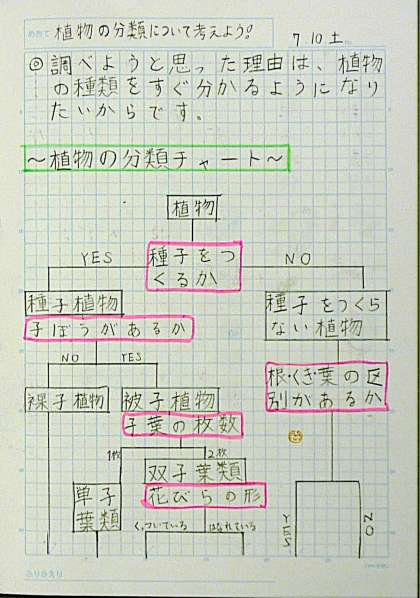 めあて 植物の分類について考えよう!
7 10 土
◎調べようと思った理由は、植物
の種類をすぐ分かるようになり
たいからです。
~植物の分類チャート~
植物
種子をつ
くるか
YES
NO
種子植物
子ぼうがあるか
種子をつくら
ない植物
NO
YES
根・くき・葉の区
別があるか
裸子植物
被子植物
子葉の枚数
1枚
2枚
単子
葉類
双子葉類
花びらの形
くっついている
はなれている
YES
NO
ふりかえり